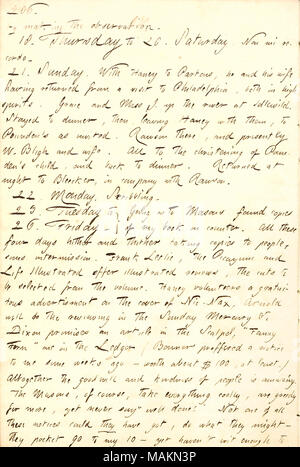 206.
in the observation.
18. Thursday to 20. Saturday. Non mi re-
cordo.
21. Sunday. With Haney to Partons, he and his wife
having returned from a visit to Philadelphia, both in high
spirits. Grace and Miss J. up the river at Idlewild.
Stayed to dinner, then leaving Haney with them, to
as invited. Rawson there, and presently
W. Bligh and wife. All to the christening of
den's child, and back to dinner. Returned at
night to Bleecker, in company with Rawson.
22. Monday. Scribbling.
23. Tuesday to Going to Masons found copies
26. Friday of my book on counter. All these
four days hither and thither taking copies to people,
sans intermission. Frank Leslie, the Picayune and
Life Illustrated offer illustrated reviews, the cuts to
be selected from the volume. Haney volunteers a gratuitous
advertisement on the cover of Nic-Nax. Arnold
will do the reviewing in the Sunday Mercury &
Dixon promises an article in the Scalpel, "Fanny
Fern" one in the Ledger (Bonner proffered a notice
to me some weeks ago — worth about $100, at least.)
Altogether the goodwill and kindness of people is amazing.
The Masons, of course, take everything coolly, are greedy
for more, yet never say "well done!" Not one of all
these notices could they have got, do what they might —
they pocket 90 to my 10 — yet haven't wit enough to